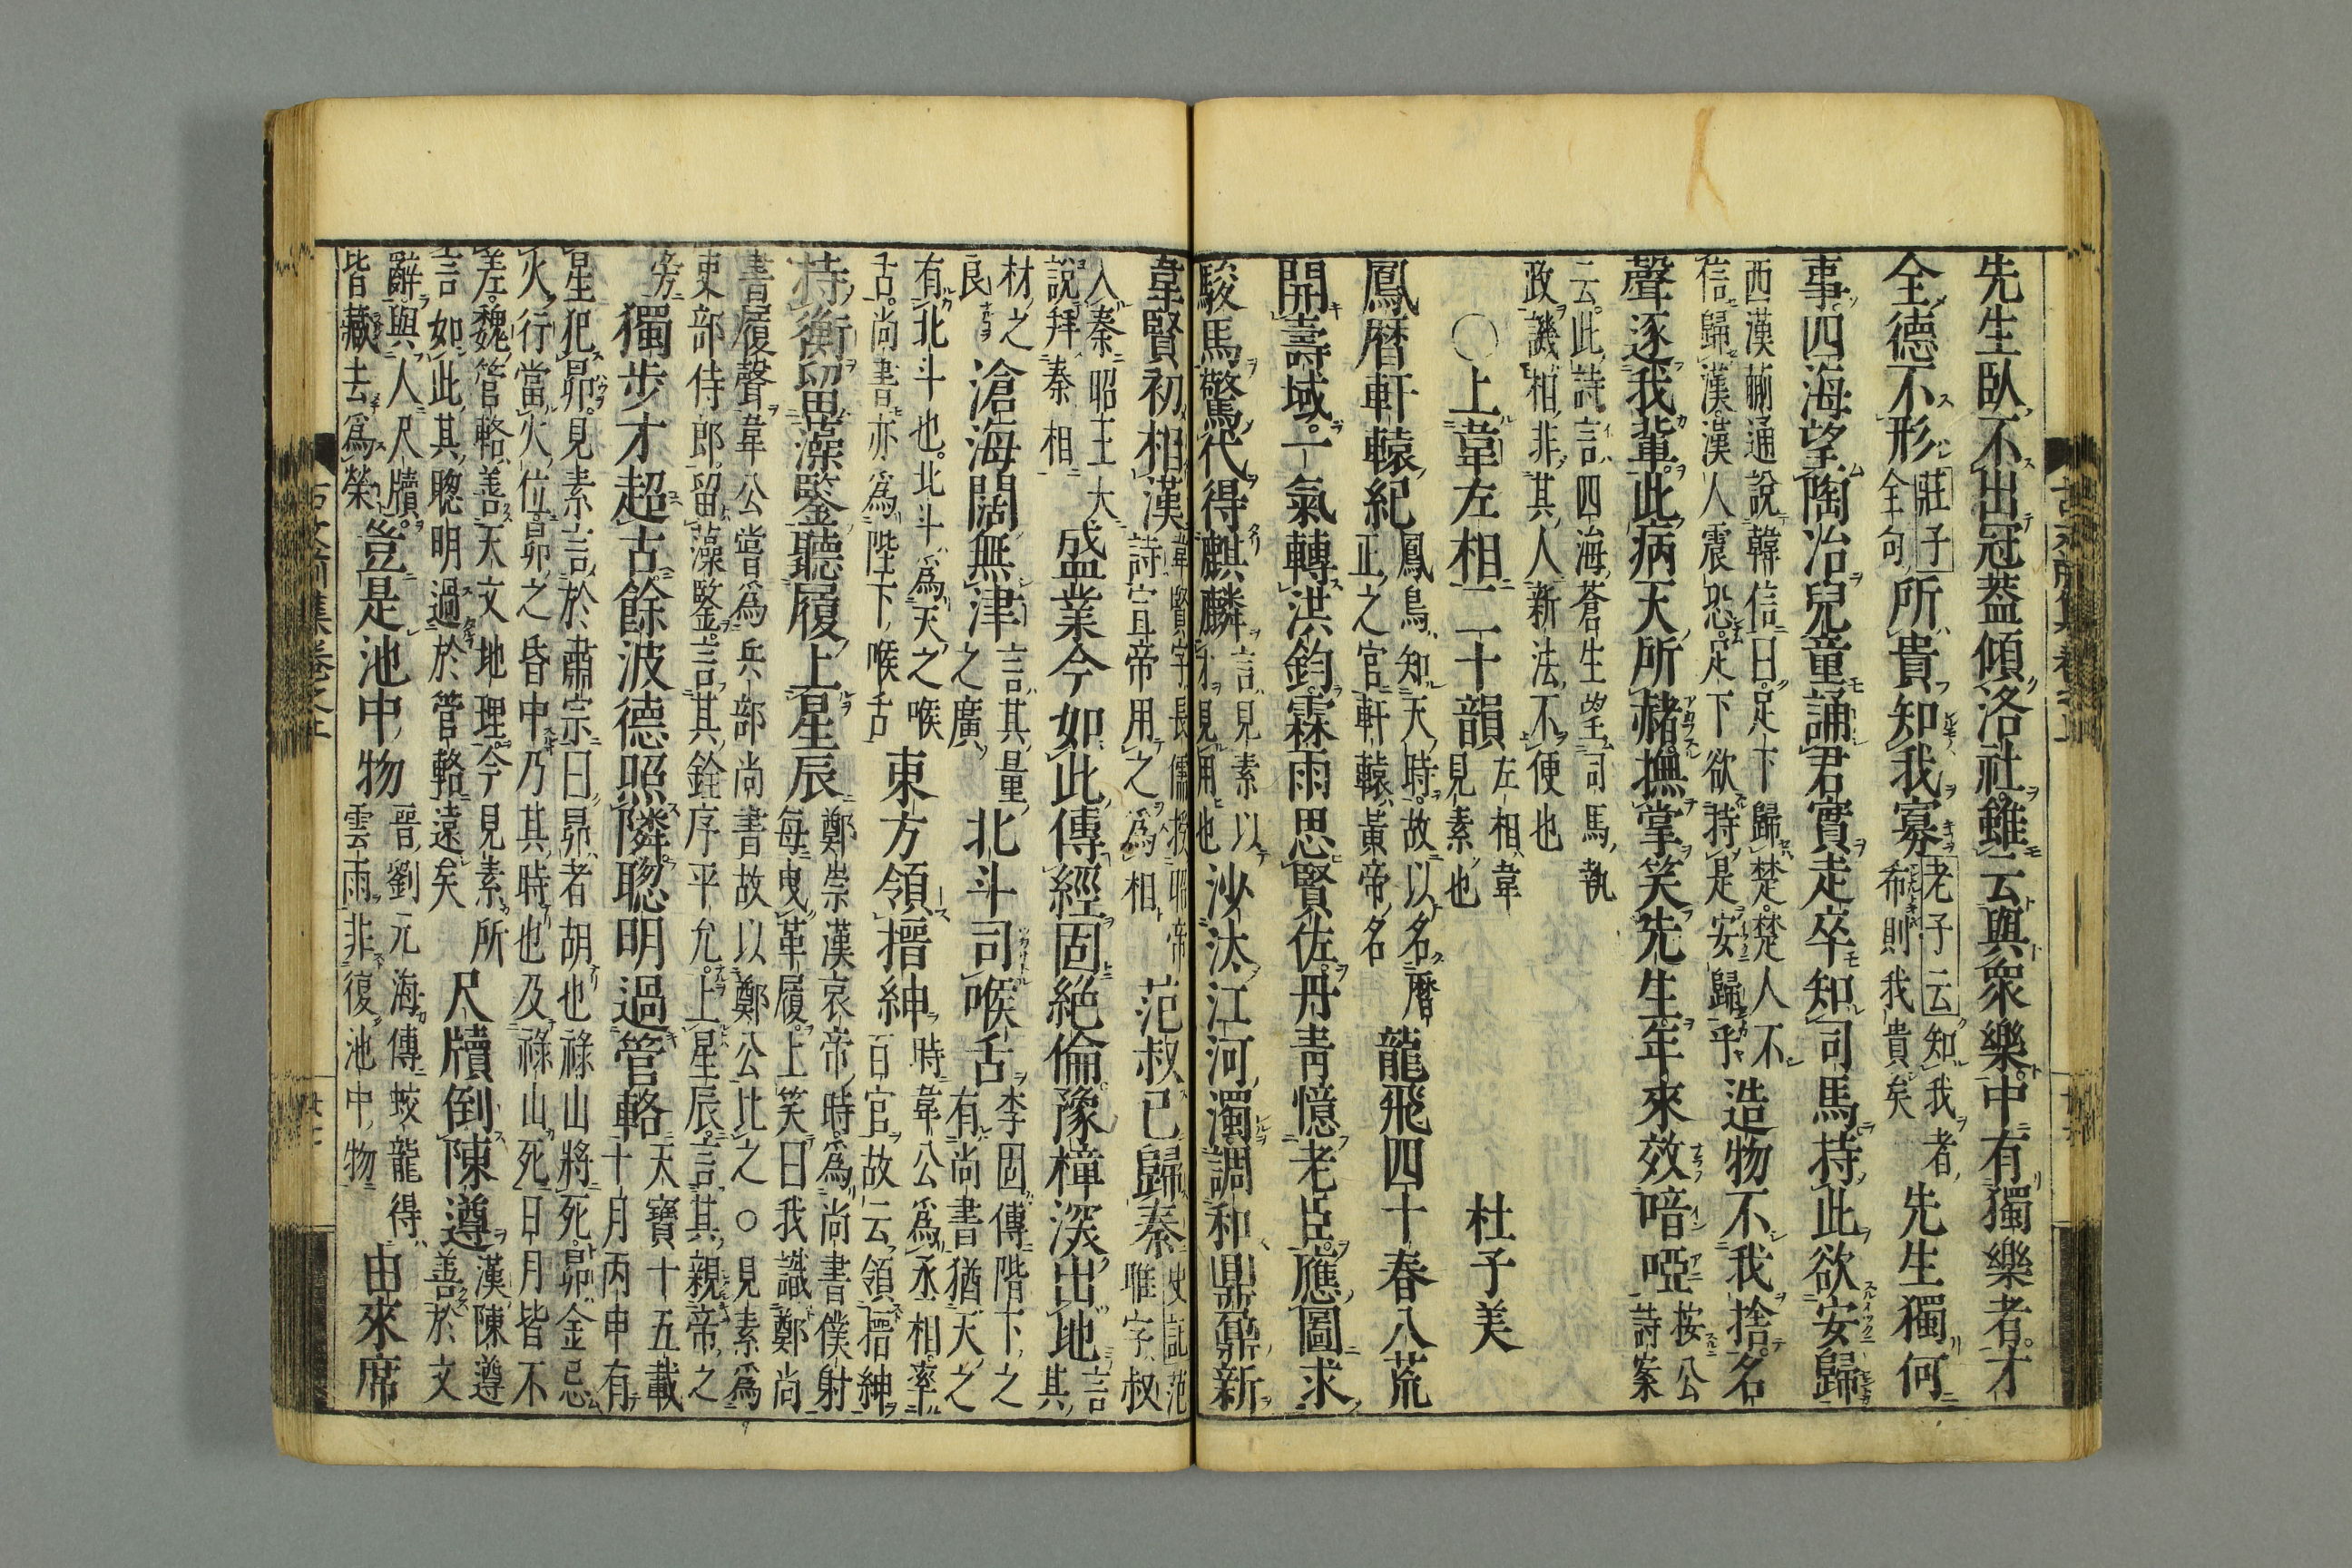 先生臥不出冠蓋傾洛社雖云與衆樂中有獨樂者才
全德不形莊子全句所貴知我寡老子云知我者希則我貴矣先生獨何
事四海望陶冶兒童誦君實走卒知司馬持此欲安歸
西漢蒯通說韓信曰足下歸楚楚人不信歸漢漢人震恐足下欲持是安歸乎造物不我捨名
聲逐我輩此病天所赭撫掌笑先生年來效喑啞按公詩案
云此詩言四海蒼生望司馬執政譏相非其人新法不便也
〇上韋左相二十韻左相韋見素也 杜子美
鳳曆軒轅紀鳳鳥知天時故以名曆正之官軒轅黃帝名龍飛四十春八荒
開壽域一氣轉洪鈞霖雨思賢佐丹靑憶老臣應圖求
駿馬驚代得麒麟言見素以才見用也沙汰江河濁調和鼎鼐新
韋賢初相漢韋賢字長儒授昭帝詩宣帝用之爲相范叔已歸秦史記范雎字叔
入秦昭王大說拜秦相盛業今如此傳經固絶倫豫樟深出地言其
材之良滄海闊無津言其量之廣北斗司喉舌李固傳階下之有尚書猶天之
有北斗也北斗爲天之喉舌尚書亦爲陛下喉舌東方領搢紳時韋公爲丞相率百官故云領搢紳
持衡留藻鑒聽履上星辰鄭崇漢哀帝時爲尚書僕射每曳革履上笑曰我識鄭尚
書履聲韋公嘗爲兵部尚書故以鄭公比之〇見素爲吏部侍郎留藻鑒言其銓序平允上星辰言其親帝之
旁獨步才超古餘波德照隣聰明過管輅天寶十五載十月丙申有
星犯昴見素言於肅宗曰昴者胡也祿山將死昴金忌火行當火位昴之昏中乃其時也及祿山死日月皆不
差魏管輅善天文地理今見素所言如此其聰明過於管輅遠矣尺牘倒陳遵漢陳遵善於文
辭與人尺牘皆藏去爲榮豈是池中物晉劉元海傳蛟龍得雲雨非復池中物由來席